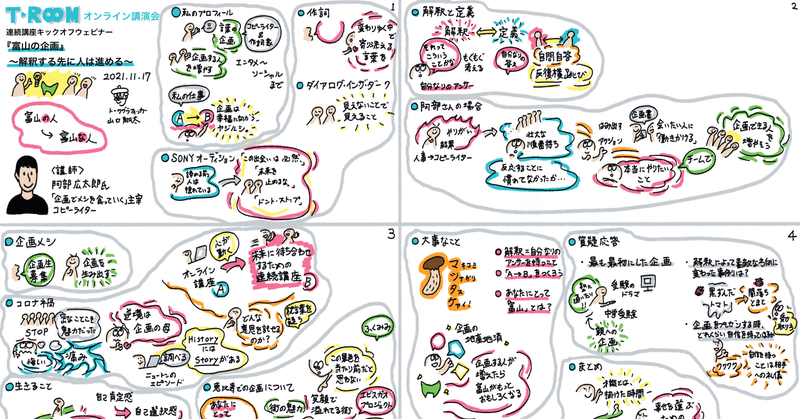 T・ROOM オンライン講演会
連続講座キックオフウェビナー
『富山の企画』
〜解釈する先に人は進める〜
2021.11.17
トークグラフィッカー
山口翔太
富山の人
→ 富山な人
〈講師〉
阿部広太郎氏
「企画でメシを食っていく」主宰
コピーライター
1
私のプロフィール
言葉の企画
コピーライター
&
作詞家
企画する人を増やす
エンタメ〜
ソーシャル
まで
私の仕事
A → B
企画は
幸福に向かう
ヤジルシ。
作詞
変わりゆく中で
寄り添える
言葉を
ダイアログ・イン・ザ・ダーク
見えないことで
見えること
SONY オーディション
諦める前
人は
憧れている
「この出会いは必然」
「未来を
止めるな。」
「ドント・ストップ」
2
解釈と定義
解釈 定義
それって
こういう
ことかな
もくもく
考える
自分なりの
答え
自問自答
反復横とび
自分なりのアンサー
阿部さんの場合
やりがい
結果
人事→コピーライター
壮大な
順番待ち
反応することに
慣れてなかったか…
はみ出す
アクション
企画書
会いたい人に
働きかける。
本当にやりたい
こと
チームで
企画できる人を
増やそう
3
企画メシ
企画生
募集
企画を
生み出す
心が
動く
オンライン
講座
A
未来に待ち合わせ
するための
連続講座
B
コロナ禍
STOP
悔しい
痛み
逆境は
企画の母
調べる
ニュートンの
エピソード
History
には
Storyがある
どんな
景色を見せる
のか?
生きること
自己肯定感
自己選択感
恵比寿での企画について
あなたに
とって
街の魅力
笑顔で
溢れる街
この景色を
当たり前だと
思わない
エビスガオ
プロジェクト
4
大事なこと
マネヨコ
マツ
タ
ケ
解釈=自分なりの
アンサーを持つこと
「A→B」をつくろう
あなたにとって
富山とは?
企画の
地産地消
企画する人が
増えたら
富山がもっと
おもしろくなる
質疑応答
・最も最初にした企画
受験の
ドラマ
中学受験
親への
企画
・解釈によって素敵な方向に
変わった事例とは?
黒ずんだ
トマト
闇落ち
とまと
・企画をプレゼンする時、
どれくらい自信を持ってる?
ワクワク
自信を持つ
ことは相手
への礼儀
まとめ
才能とは
かけた時間
道を選ぶ
ための